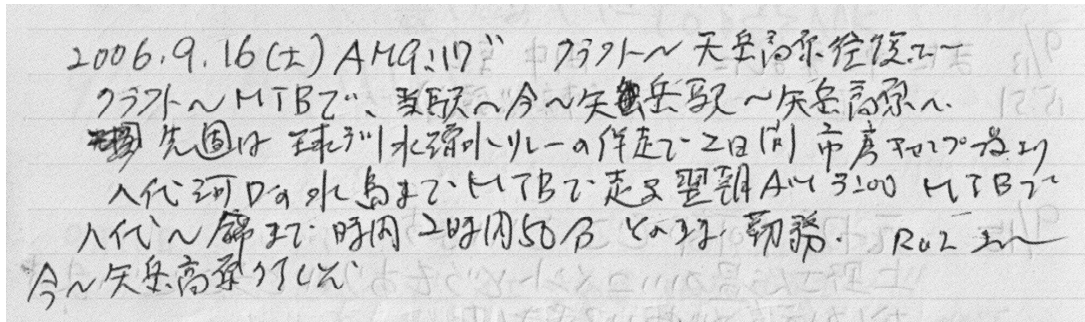 2006.9.16(土) AM9:17 クラフト〜矢岳高原往復で
クラフト〜MTBで、当駅へ今〜矢岳駅〜矢岳高原へ.
先週は球磨川水源水リレーの伴走で2日間 市房キャンプ場より
八代河口の水島まで MTBで走る 翌朝AM3:00 MTBで
八代〜錦まで 時間2時間50分 そのまま勤務.
今〜矢岳高原